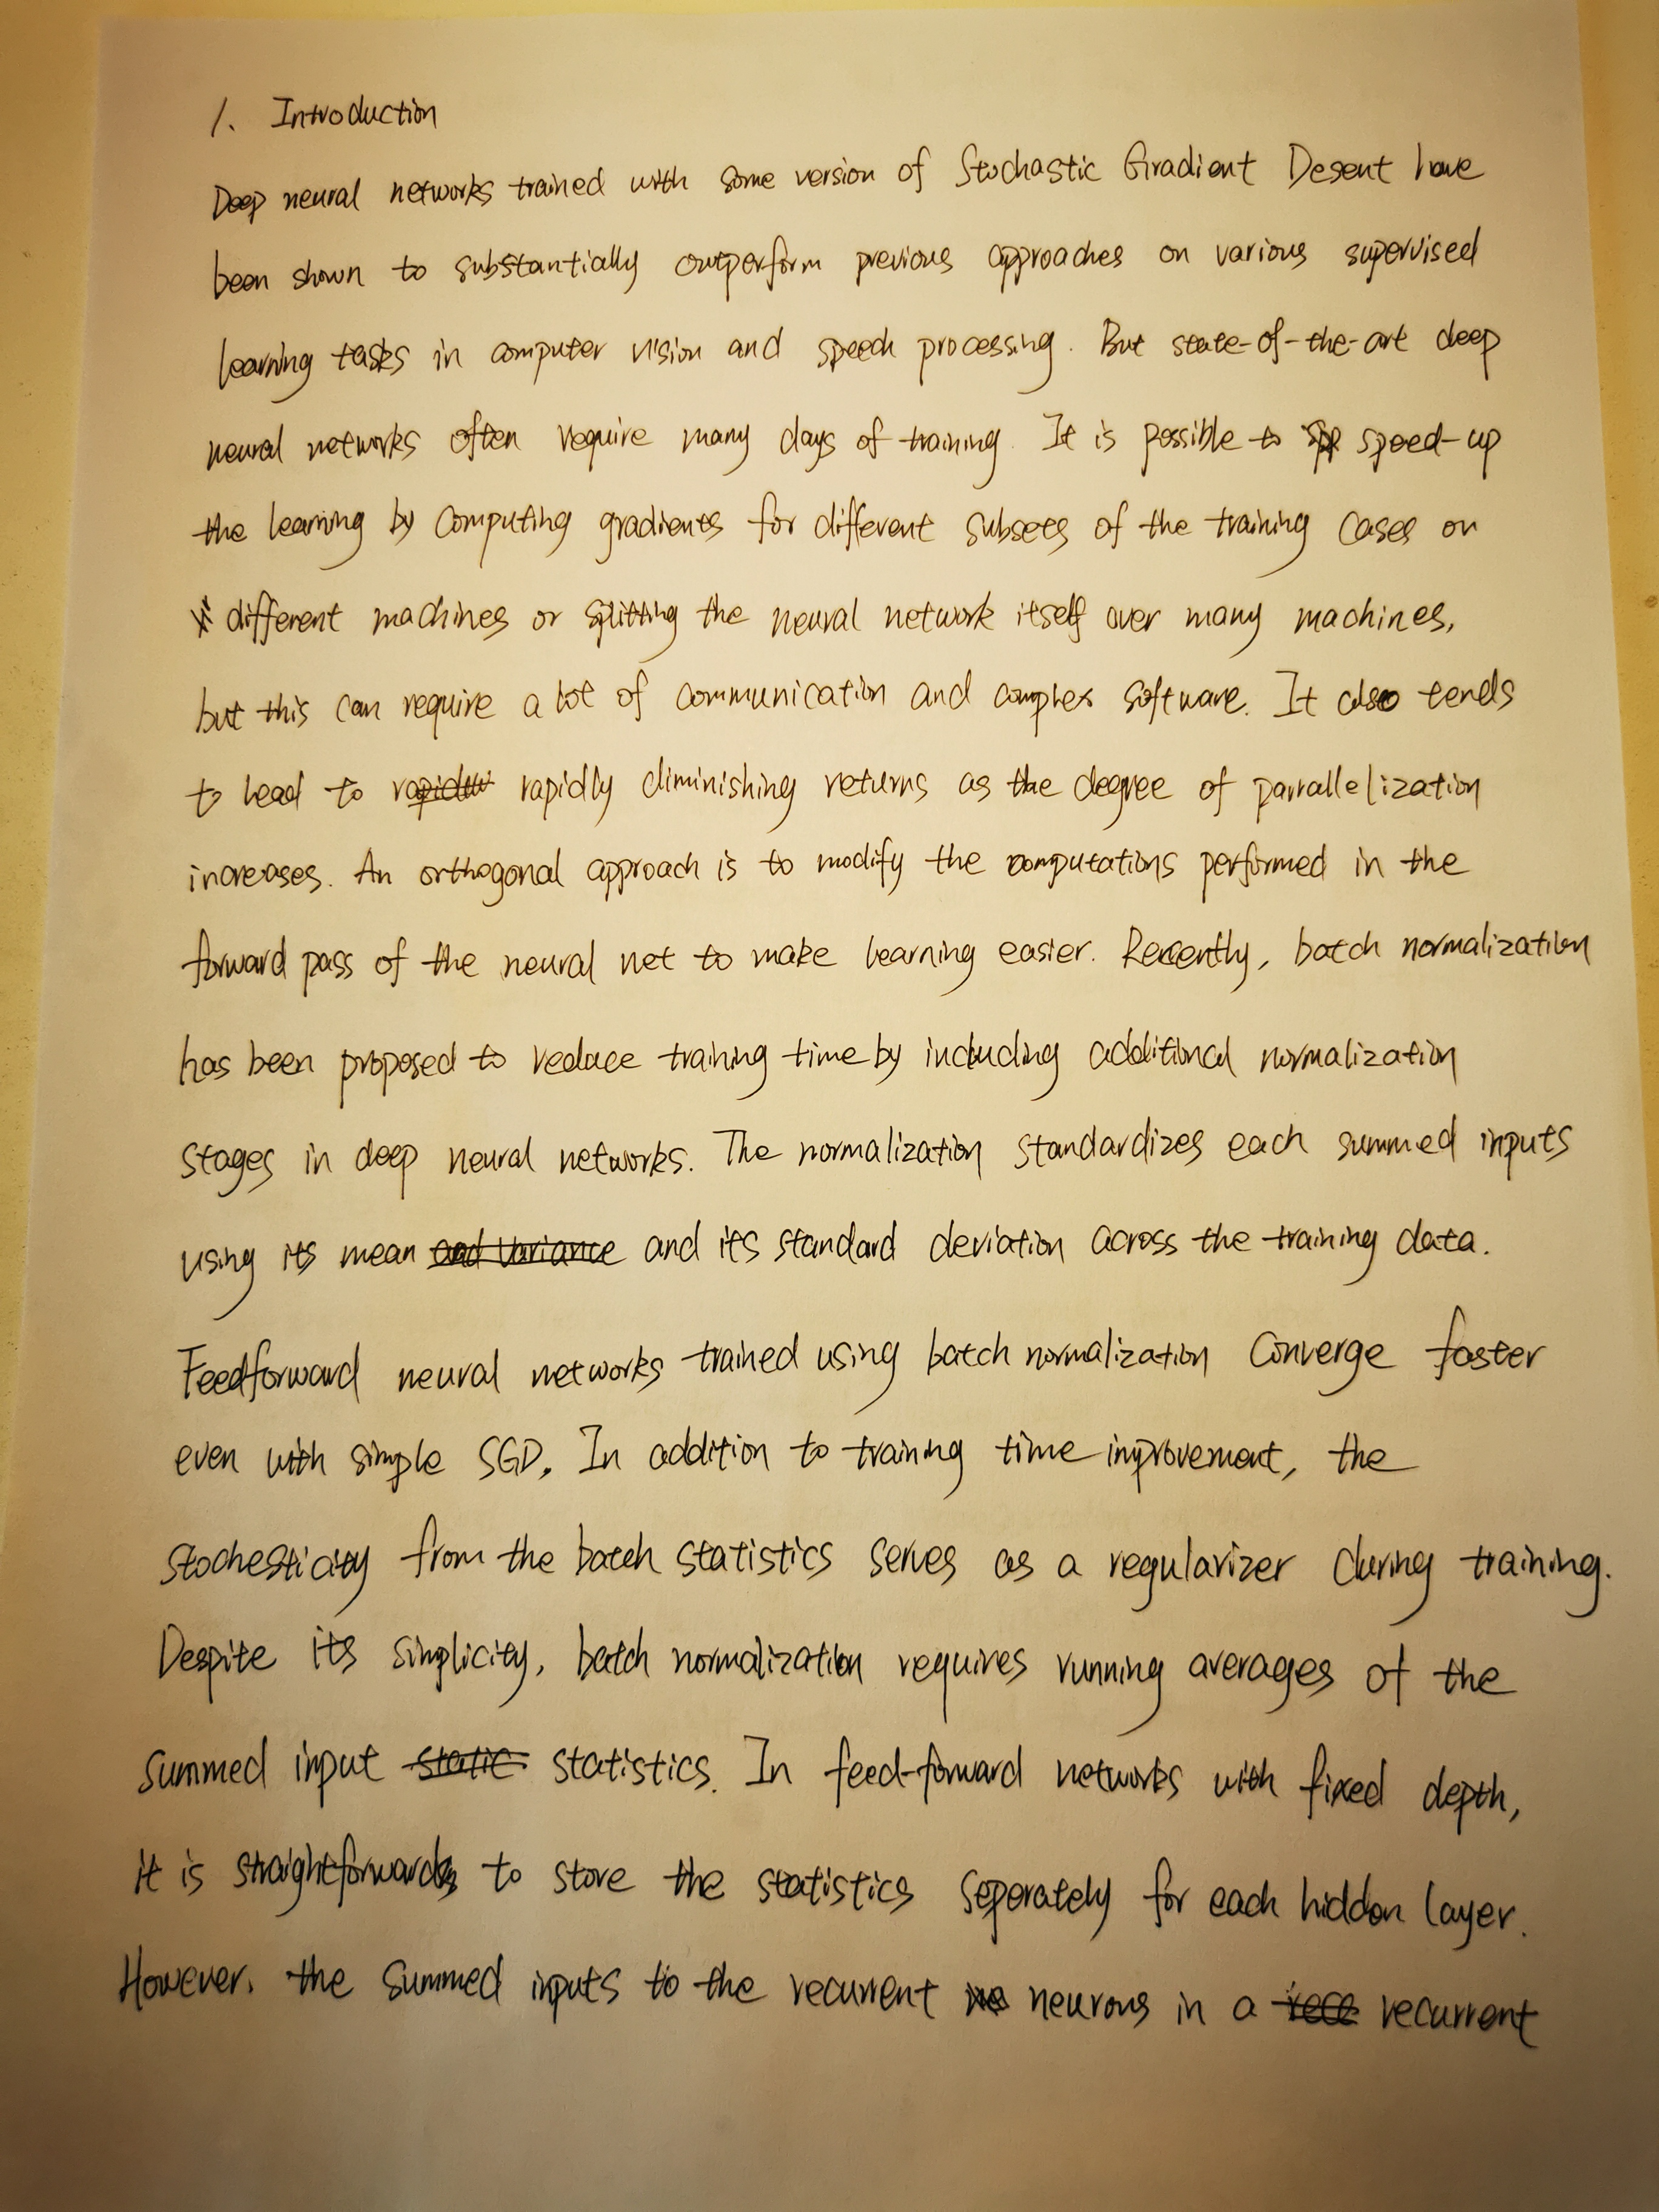 1. Introduction
Deep neural networks trained with some version of Stochastic Gradient Desent have
been shown to substantially outperform previous approaches on various supervised
learning tasks in computer vision and speech processing. But state-of-the-art deep
neural networks often require many days of training. It is possible to speed-up
the learning by computing gradients for different subsets of the training cases on
different machines or splitting the neural network itself over many machines,
but this can require a lot of communication and complex software. It also tends
to lead to rapidly diminishing returns as the degree of parrallelization
increases. An orthogonal approach is to modify the computations performed in the
forward pass of the neural net to make learning easier. Recently, batch normalization
has been proposed to reduce training time by including additional normalization
stages in deep neural networks. The normalization standardizes each summed inputs
using its mean and variance and its standard deviation across the training data.
Feedforward neural networks trained using batch normalization converge faster
even with simple SGD. In addition to training time improvement, the
stochesticity from the batch statistics serves as a regularizer during training.
Despite its simplicity, batch normalization requires running averages of the
summed input static statistics. In feed-forward networks with fixed depth,
it is straightforward to store the statistics seperately for each hidden layer.
However, the summed inputs to the recurrent neurons in a recurrent